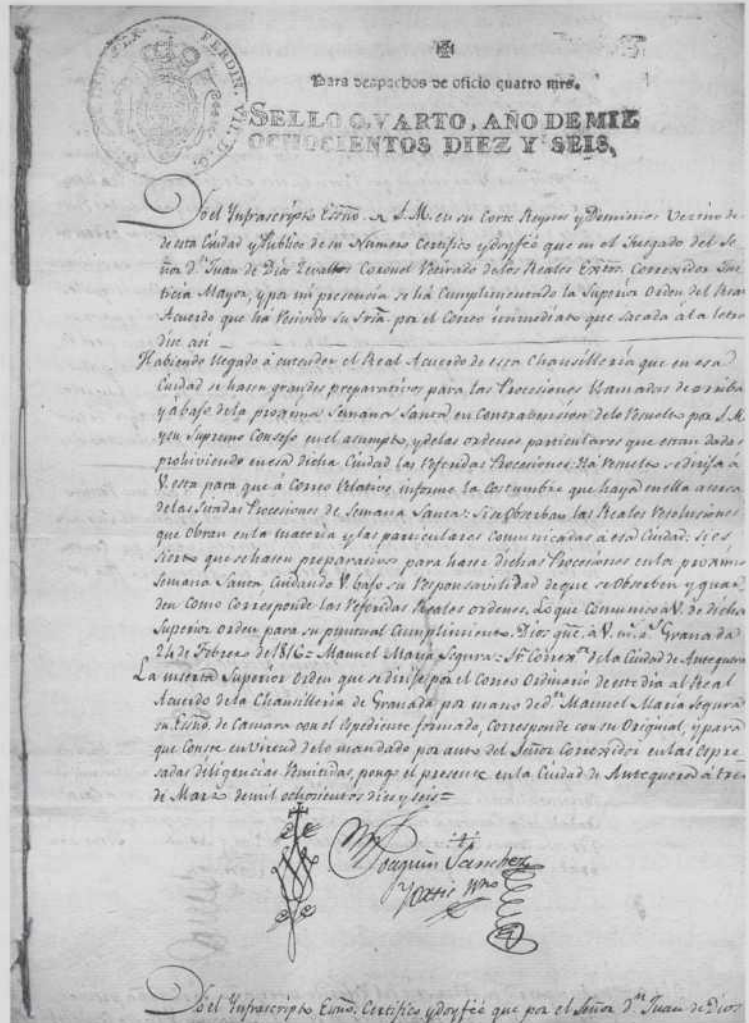 FERDIN. VII. D. G.
Para despachos de oficio quatro mrs.
SELLO QVARTO, AÑO DE MIL
OCHOCIENTOS DIEZ Y SEIS.
Yo el Infrascripto Essño. de S.M. en su Corte Reynos y Dominios Vezino de
de esta Ciudad y Publico de su Numero Certifico y doy feé que en el Juzgado del Se-
ñor dn. Juan de Dios Zevallos Coronel Retirado de los Reales Extos. Correxidor Jus-
ticia Mayor, y por mi presencia se há Cumplimentado la Superior Orden del Real
Acuerdo que há Resivido su Sria. por el Correo inmediato que sacada á la letra
dice asi
Habiendo llegado á entender el Real Acuerdo de essa Chansillería que en esa
Ciudad se hasen grandes preparativos para las Procesiones llamadas de arriba
y abajo de la proxima Semana Santa en Contrabension de lo Resuelto por S.M.
y su Supremo Consejo en el asumpto, y de las ordenes particulares que estan dadas
prohiviendo en esa dicha Ciudad las Referidas Procesiones: Há Resuelto se dirija á
V. esta para que á Correo Relativo informe la Costumbre que haya en ella acerca
de las Sitadas Procesiones de Semana Santa: Si se Observan las Reales Resolusiones
que obran en la materia y las particulares Comunicadas á esa Ciudad: si es
sierto que se hasen preparativos para haser dichas Procesiones en la proxima
Semana Santa, Cuidando V. bajo su Responsavilidad de que se Observen y guar-
den como Corresponde las Referidas Reales ordenes. Lo que Comunico á V. de dicha
Superior Orden para su puntual Cumplimiento. Dios gue. á V. ms. as. Granada
24 de Febrero de 1816 = Manuel María Segura = Sr. Correxr. de la Ciudad de Antequera
La inserta Superior Orden que se dirije por el Correo Ordinario de este dia al Real
Acuerdo de la Chansilleria de Granada por mano de dn. Manuel María Segura
su Essño. de Camara con el Espediente formado, Corresponde con su Original, y para
que Conste en Virtud de lo mandado por auto del Señor Correxidor en las Epre-
sadas diligencias Remitidas, pongo el presente en la Ciudad de Antequera á tres
de Marzo de mil ochosientos dies y seis =
Joaquin Sanchez
Yo el Infrascripto Essño. Certifico y doy feé que por el Señor dn. Juan de Dios